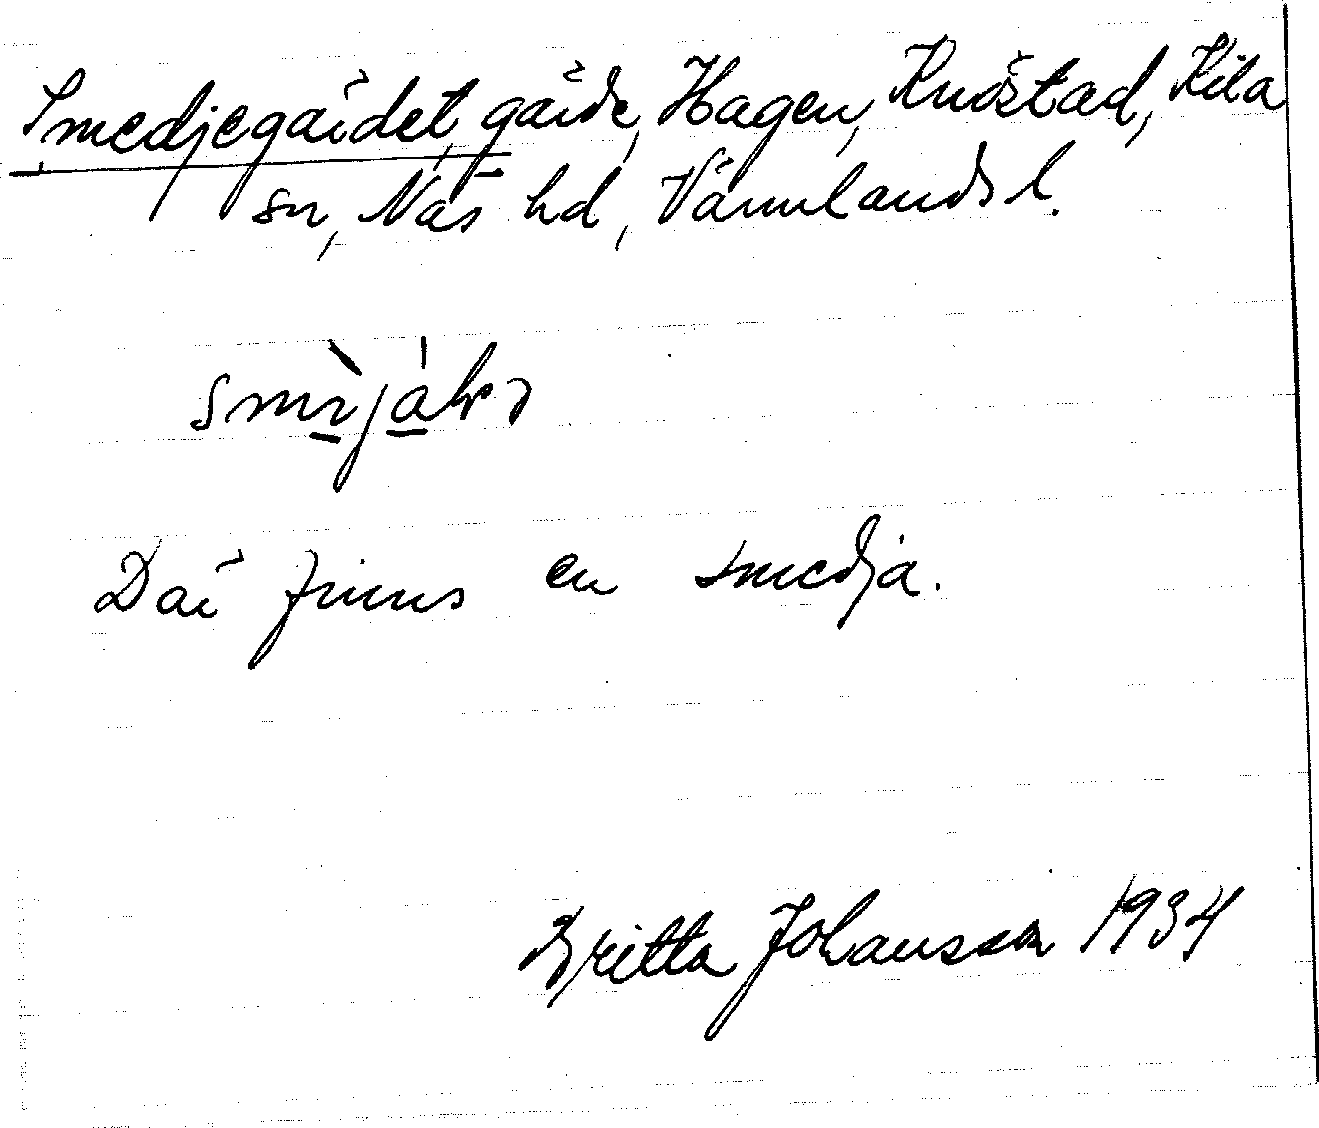 Smedjegärdet, gärde, Hagen, Knöstad, Kila
sn, Näs hd, Värmlands l.
Där finns en smedja.
Britta Johansson 1934